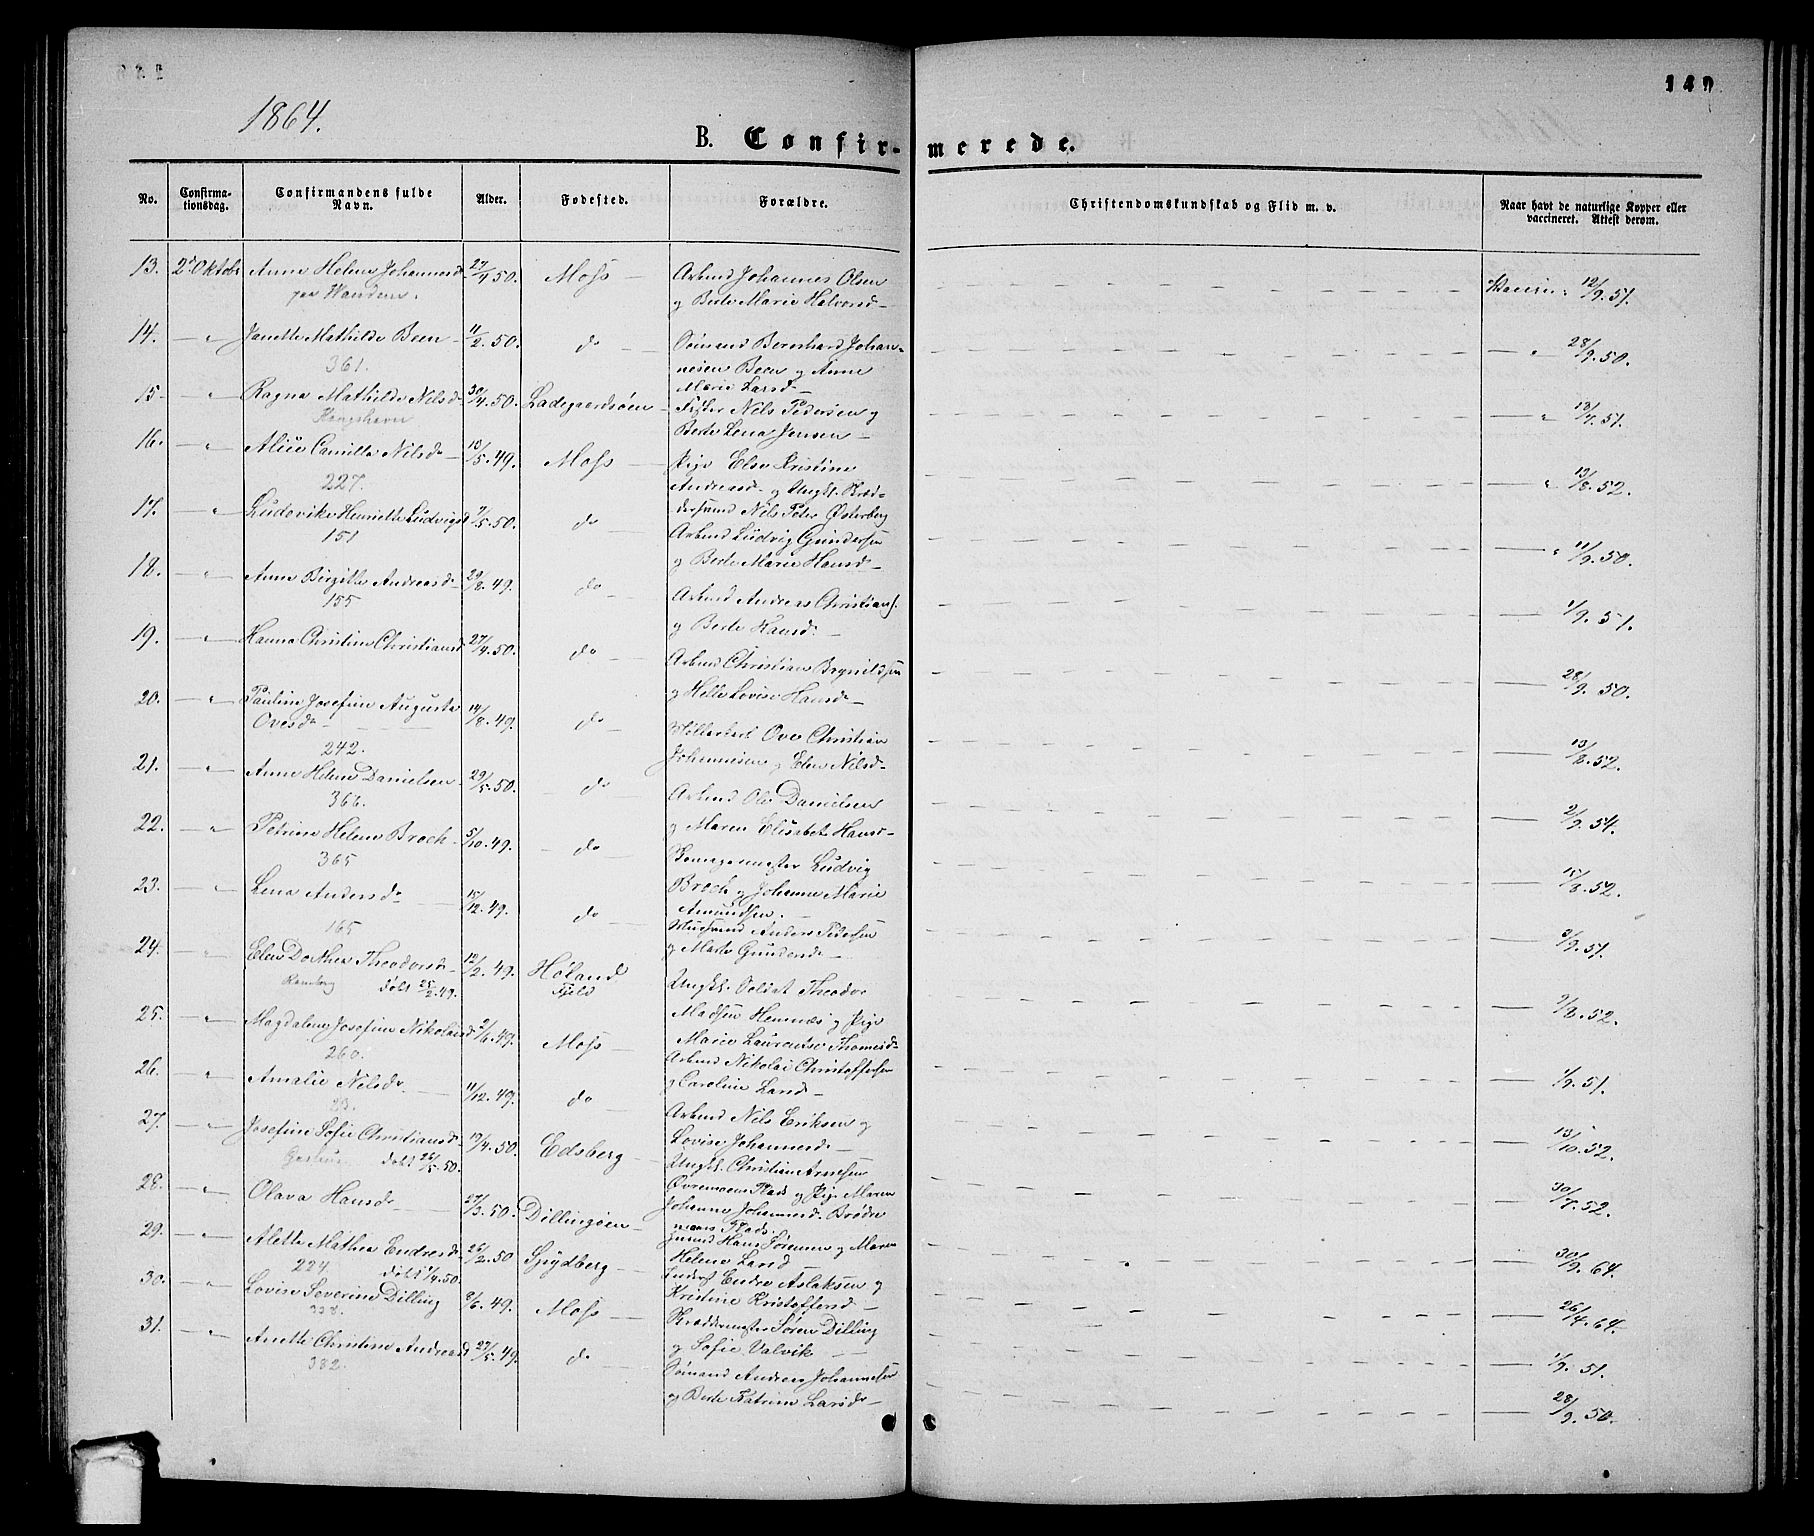 149
1864.
B. Confirmerede.
No. Confirmationsdag. Confirmandens fulde Navn. Alder. Fødested. Forældre. Christendomskundskab og Flid m. v. Naar havt de naturlige Kopper eller vaccineret. Attest derom.
13. 2' Oktobr Anne Helene Johannesd 27/4.50. Moss Arbmd Johannes Olsen Vaccin: 12/9.51.
paa Wanden. og Berte Marie Halvorsd
14. — " Janette Mathilde Been 11/2.50. do Sømand Bernhard Johan- — " 28/9.50.
361. nesen Been og Anne
Marie Larsd
15. — " Ragna Mathilde Nilsd 30/4.50. Ladegaardsøen Fisker Nils Pedersen og — " 18/7.51.
Kongshavn Berte Lena Jensen
16. — " Alice Camilla Nilsd 10/5.49. Moss Pige Else Kristine — " 13/8.52.
227. Andreasd. og Ungk. Skræd-
dersvend Nils Peter Østerberg
17. — " Ludovike Henriette Ludvigsd 7/5.50. do Arbmd Ludvig Gundersen — " 11/9.50.
151 og Berte Marie Hansd
18. — " Anne Birgitte Andreasd 29/8.49. do Arbmd Andreas Christians. — 1/9.51.
155 og Berte Hansd
19. — " Hanna Christine Christiansd 27/4.50. do Arbmd Christian Brynildsen — 28/9.50.
og Helle Lovise Hansd
20. — " Pauline Josefine Augusta 14/8.49. do Møllerkarl Ove Christian — 13/8.52.
Ovesdr Johannesen og Elen Nilsd
242.
21. — " Anne Helene Danielsen 29/5.50. do Arbmd Ole Danielsen — 2/9.54.
366. og Maren Elisabet Hansd
22. — " Petrine Helene Brock 5/10.49. do Ludvig — 15/8.52.
365 Brock og Johanne Marie
Amundsen.
23. — " Lena Andersdr 15/12.49. do Anders Pedersen — 3/9.51.
165 og Marte Gundersd
24. — " Elen Dorthea Theodorsd 12/2.49. Høland Ungk. Soldat Theodor — 9/8.52.
døbt 25/2.49. Fjeld Madsen Hemnæs og Pige
Marie Laurentse Thomesd
25. — " Magdalene Josefine Nikolaisd 9/6.49. Moss Arbmd Nikolai Christoffersen — 1/9.51.
260. og Caroline Larsd
26. — " Amalie Nilsdr 11/12.49. do Arbmd Nils Eriksen og — 13/10.52.
23. Lovise Johannesd
27. — " Josefine Sofie Christiansd 17/4.50. Edsberg Ungk. Christian Arnesen — 30/7.52.
døbt 26/5.50. Øvremoens Plads og Pige Maren
Johanne Johannesd. Brødre
moens Plads.
28. — " Olava Hansd 27/3.50. Dillingøen Hans Sørensen og Maren — 30/9.64.
Helene Larsd
29. — " Alette Mathea Endresd 26/2.50 Spydberg Inderst Endre Aslaksen og — 26/4.64.
224. døbt 1/4.50. Kristine Kristoffersd
30. — " Lovise Severine Dilling 8/6.49. Moss Skræddermester Søren Dilling — 1/9.51.
338. og Sofie Valvik
31. — " Anette Christine Andreasd 27/5.49. do Sømand Andreas Johannesen — 28/9.50.
382. og Berte Katrine Larsdr